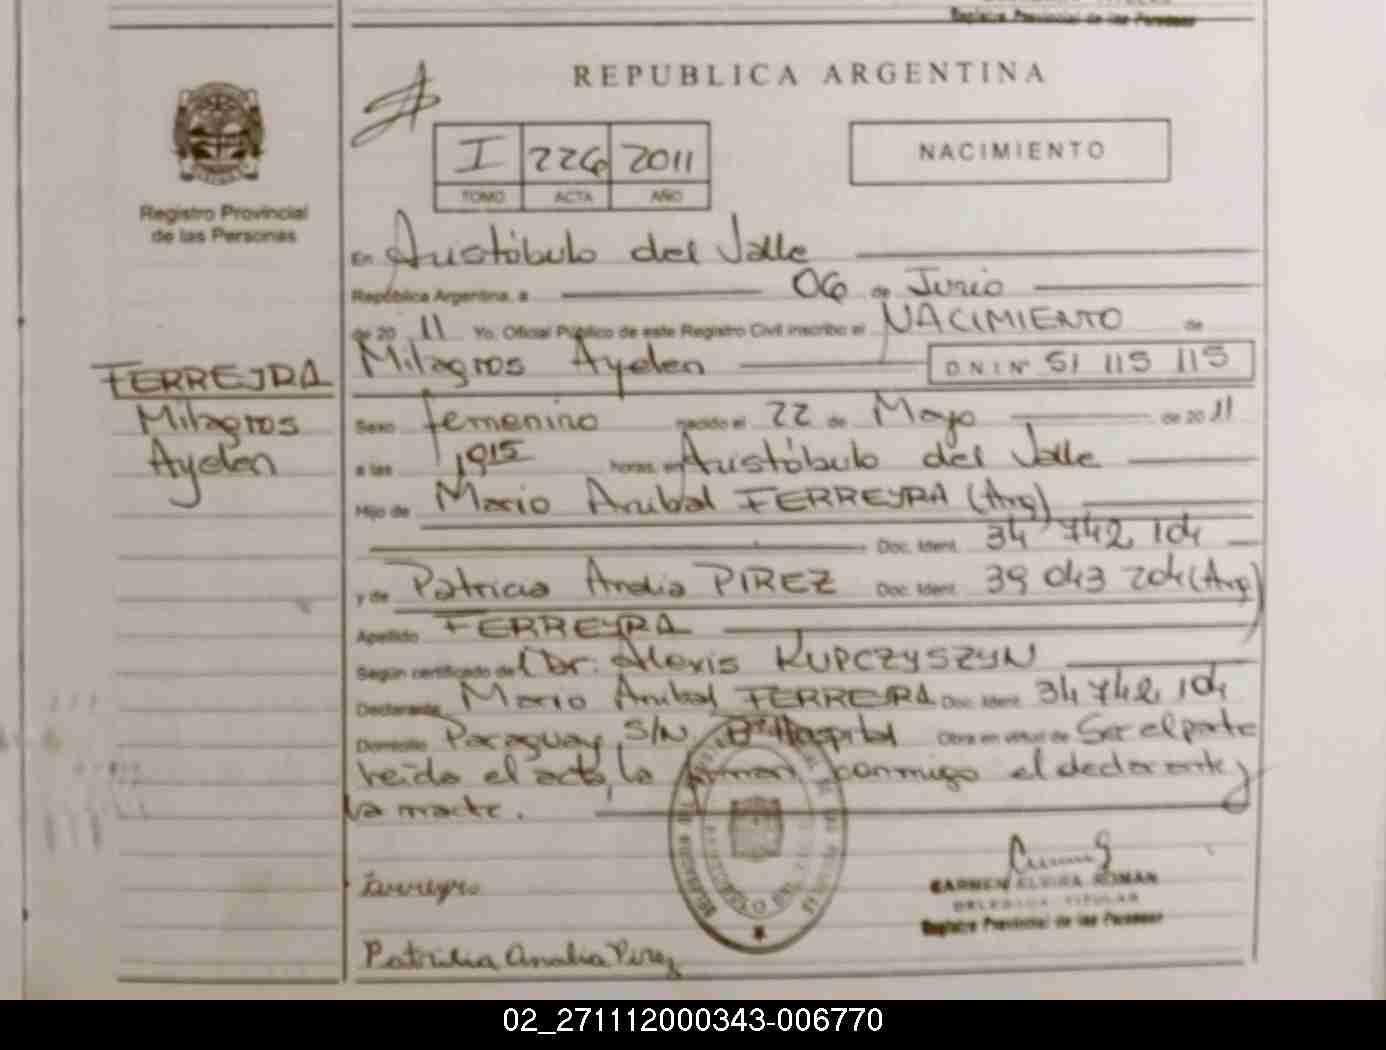 Registro Provincial de las Personas
REPUBLICA ARGENTINA
I 226 2011
TOMO ACTA AÑO
NACIMIENTO
Registro Provincial
de las Personas
En Aristóbulo del Valle
República Argentina, a 06 de Junio
de 20 11 Yo, Oficial Público de este Registro Civil inscribo el NACIMIENTO de
Milagros Ayelen D N I Nº 51 115 115
FERREJRA
Milagros
Ayelen
Sexo femenino nacido el 22 de Mayo de 20 11
a las 1915 horas, en Aristóbulo del Valle
Hijo de Mario Anibal FERREYRA (Arg)
Doc. Ident. 34 742 104
y de Patricia Analia PIREZ Doc. Ident. 39 043 204 (Arg)
Apellido FERREYRA
Según certificado de Dr. Alexis KUPCZYSZYN
Declarante Mario Anibal FERREYRA Doc. Ident. 34 742 104
Domicilio Paraguay S/N Bº Hospital Obra en virtud de Ser el padre
leido el acta, la firman conmigo el declarante y
la madre.
Ferreyra
CARMEN ELVIRA ROMAN
DELEGADA TITULAR
Registro Provincial de las Personas
Patricia Analia Pirez
02_271112000343-006770